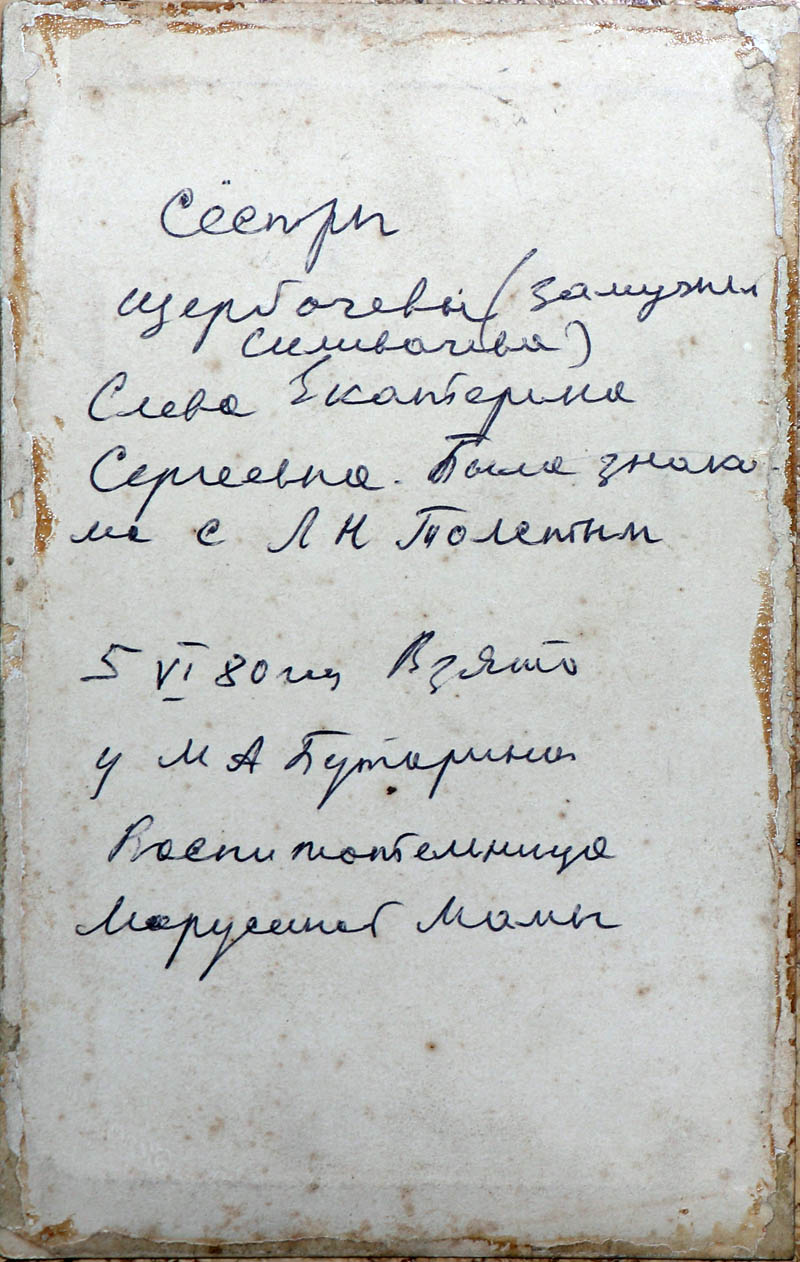 Сёстры
Щербочевы (замужем
Селивачева)
Слева Екатерина
Сергеевна. Была знако-
ма с Л Н Толстым
5 VI 80 г. Взято
у М А Бутарина
Воспитательница
Марусиной Мамы